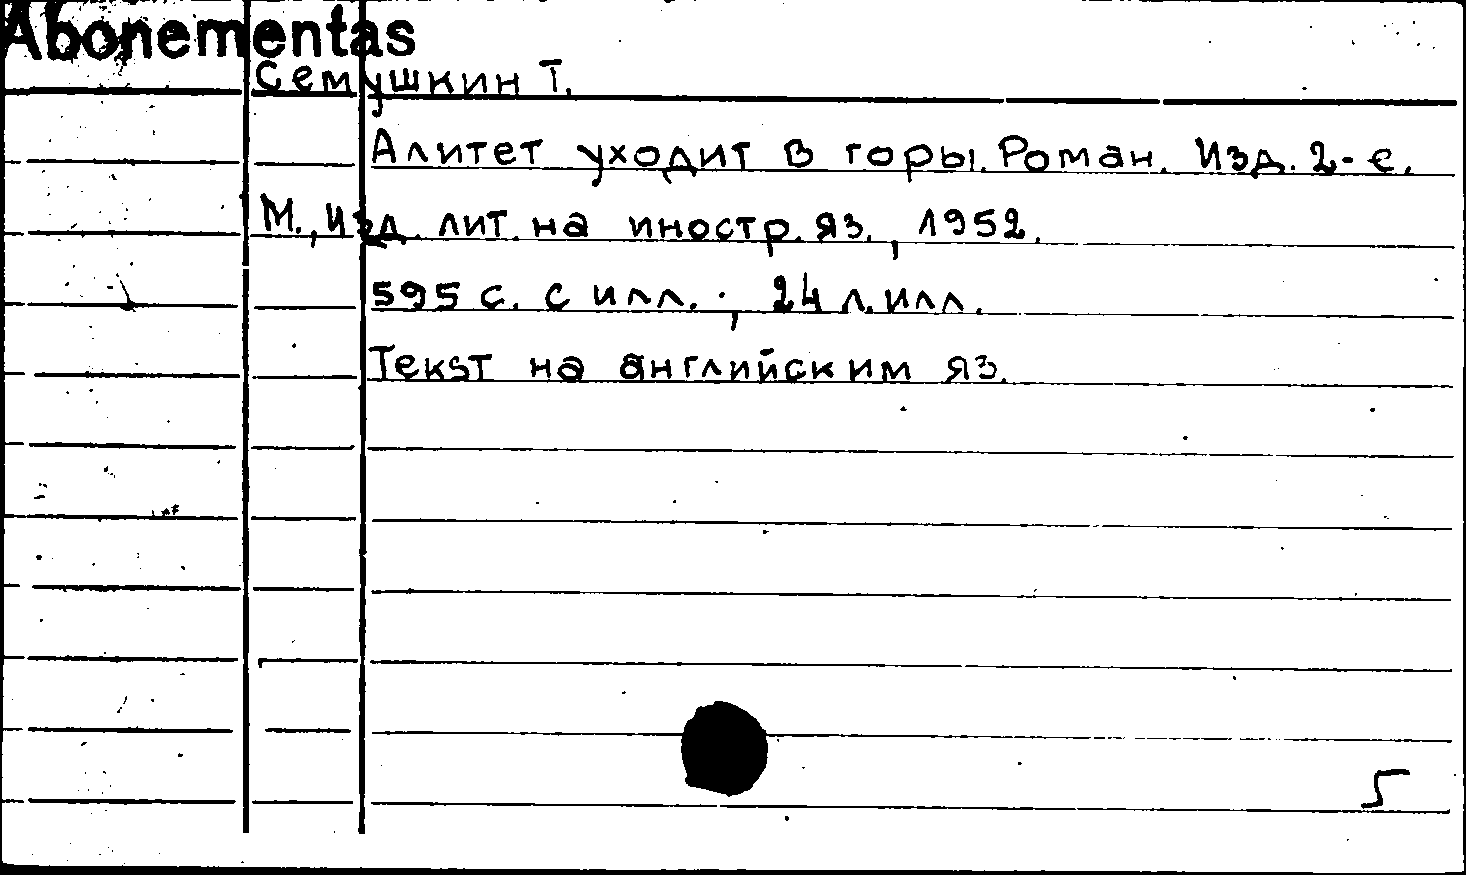 Abonementas
Семушкин Т.
Алитет уходит в горы. Роман. Изд. 2-е.
М., Изд. лит. на иностр. яз., 1952.
595 с. с илл.; 24 л. илл.
Текsт на английским яз.
5